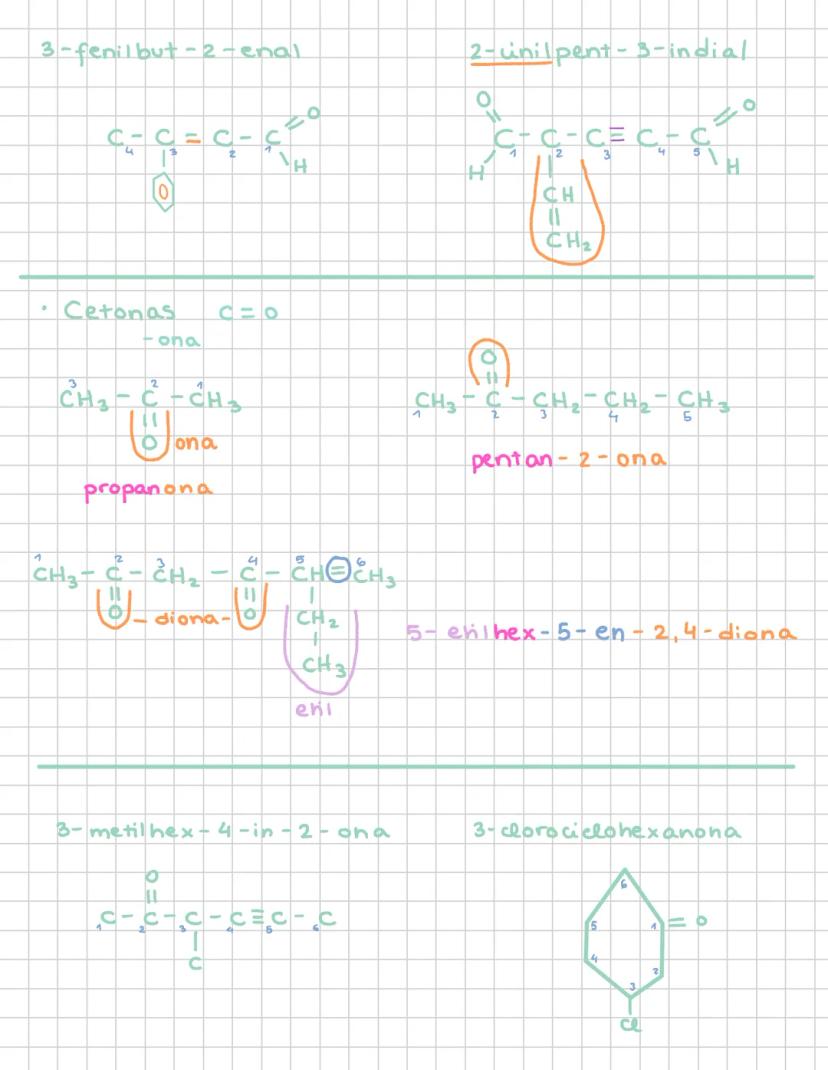 3-fenilbut-2-enal
C - C = C - C = O
4 3 2 1
H
2-vinilpent-3-indial
O O
C - C - C ≡ C - C
1 2 3 4 5
H H
CH
||
CH₂
· Cetonas C = O
-ona
3 2 1
CH₃ - C - CH₃
||
O ona
propanona
O
||
CH₃ - C - CH₂ - CH₂ - CH₃
1 2 3 4 5
pentan - 2 - ona
1 2 3 4 5 6
CH₃ - C - CH₂ - C - CH = CH₃
|| || |
O - diona - O CH₂
|
CH₃
etil
5- etilhex - 5 - en - 2,4 - diona
3-metilhex-4-in-2-ona
O
||
C - C - C - C ≡ C - C
1 2 3 4 5 6
|
C
3-clorociclohexanona
6
5 1 = O
4 2
3
Cl